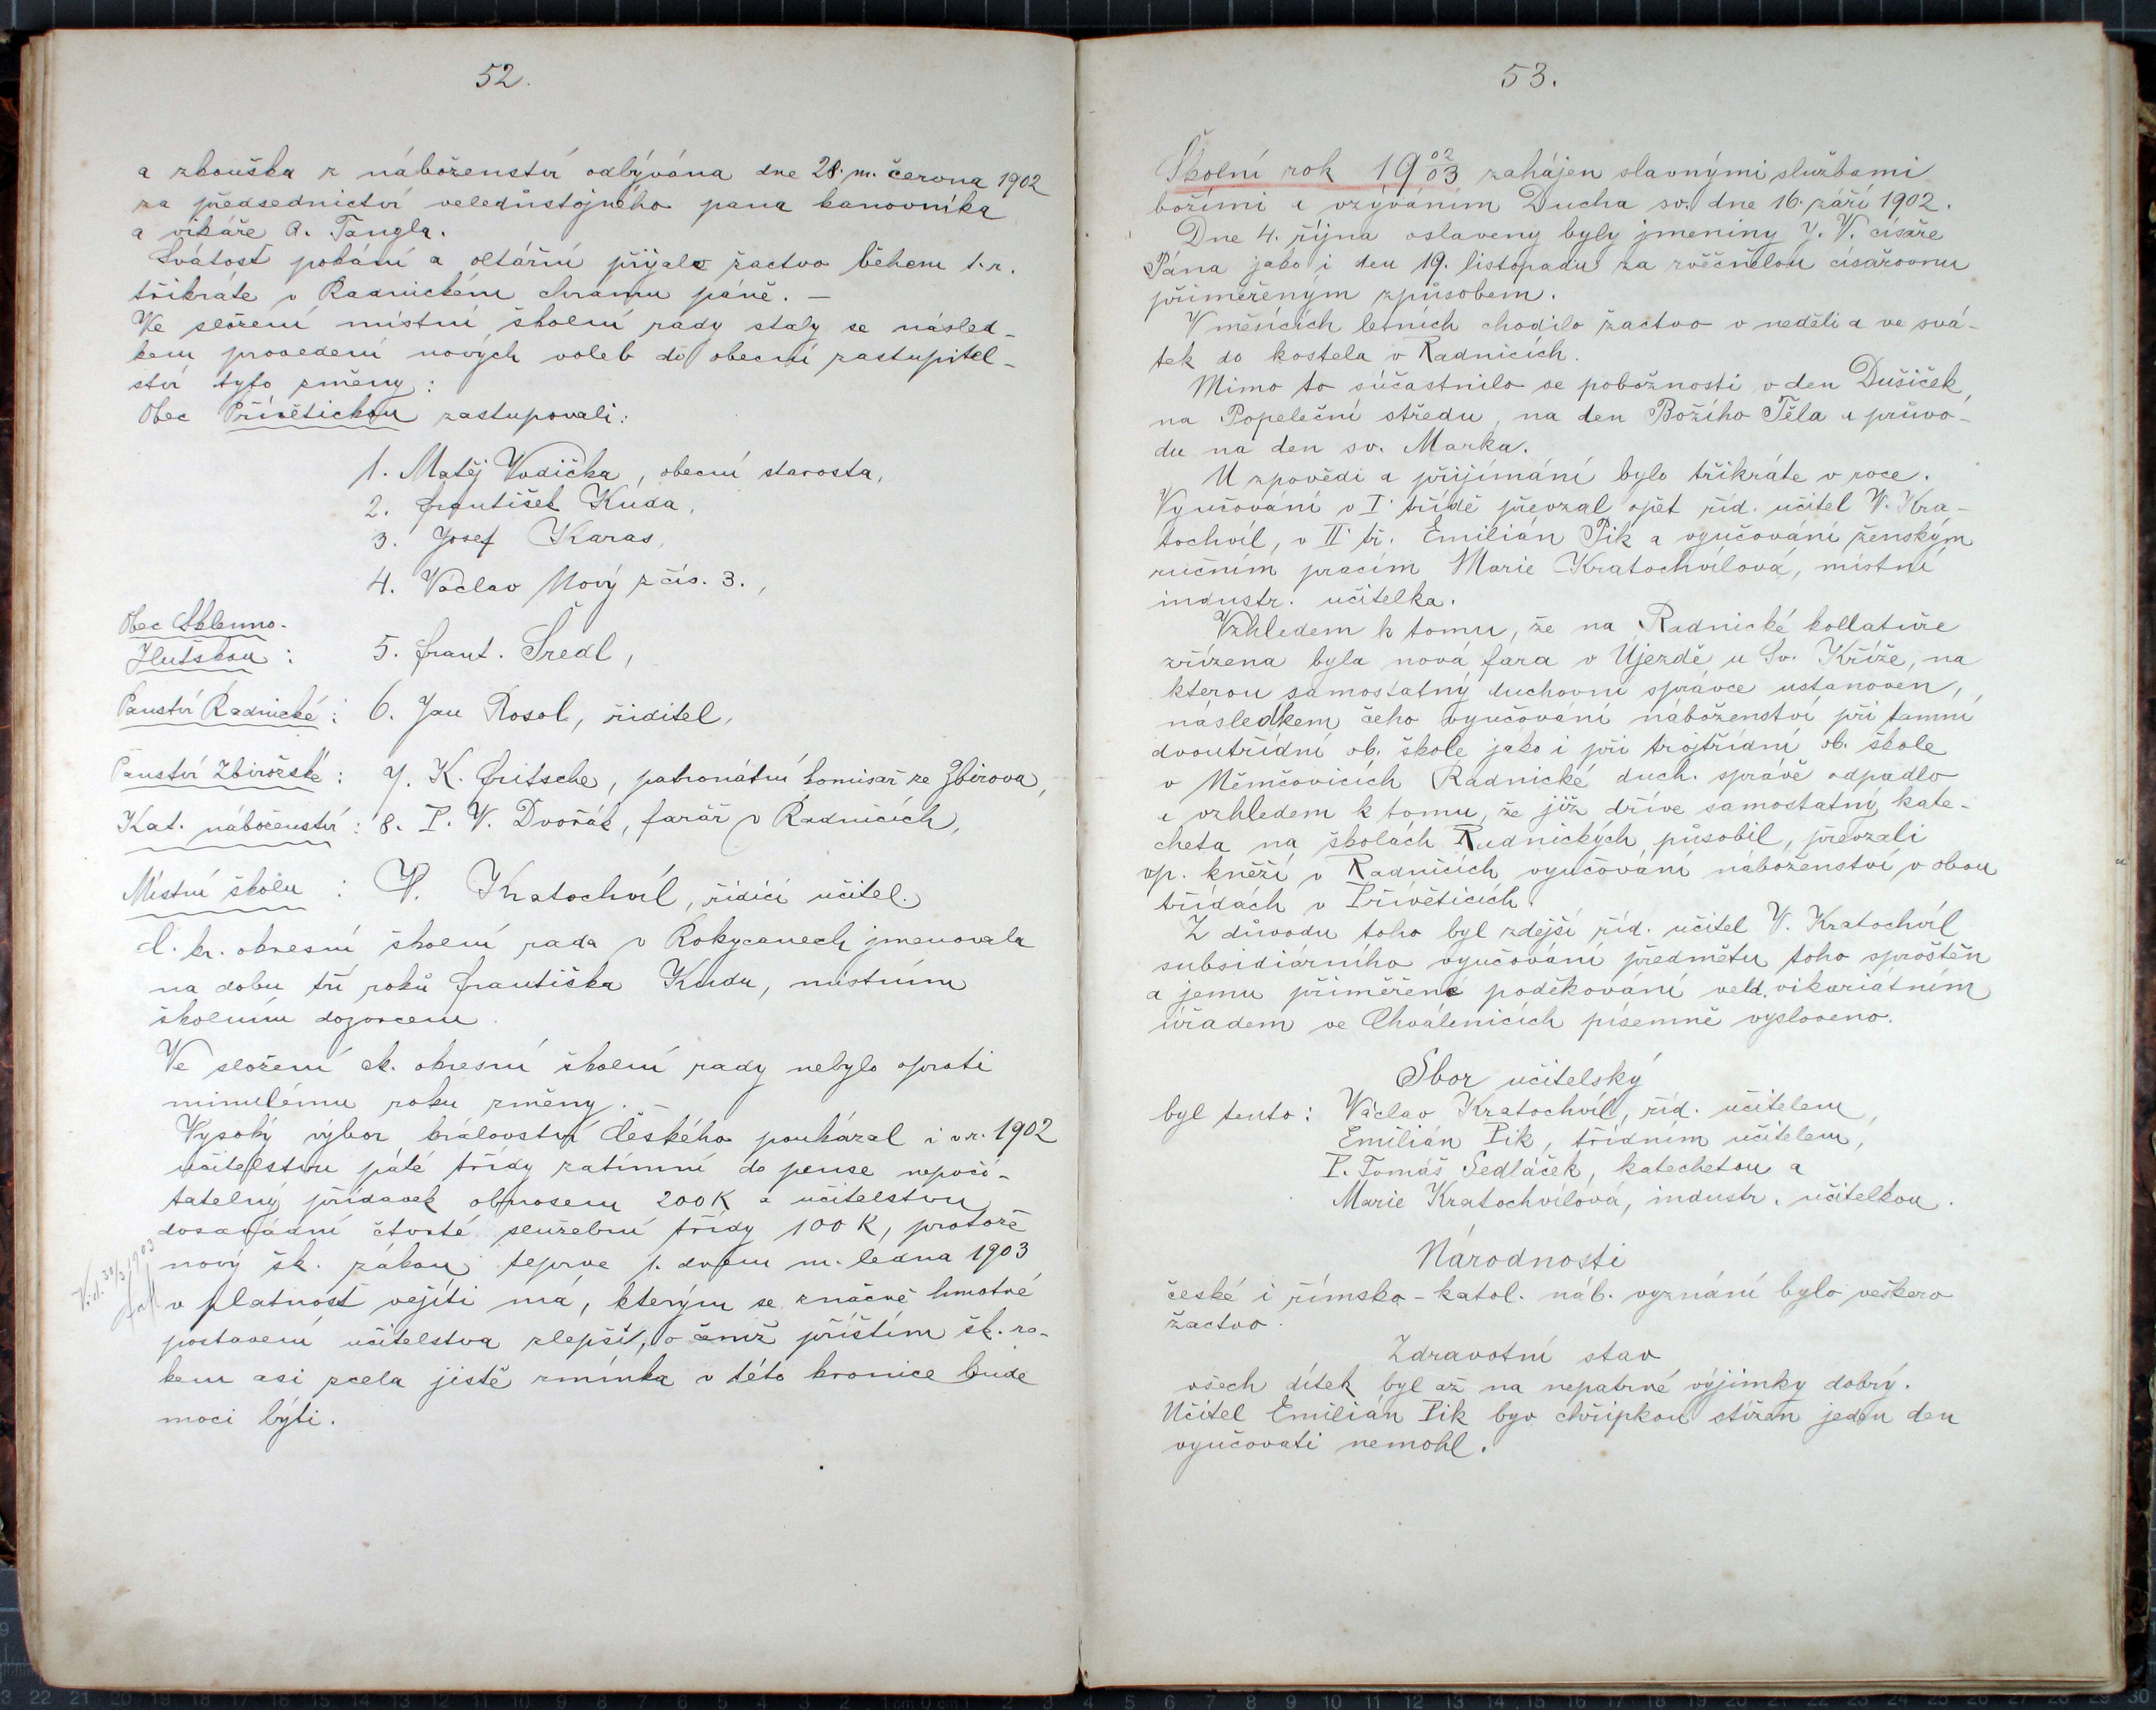 52.
a zkouška z náboženství odbývána dne 28. m. června 1902
za předsednictví veledůstojného pana kanovníka
a vikáře A. Tangla.
Svátost pokání a oltářní přijalo žactvo během t. r.
třikráte v Radnickém chrámu páně. —
Ve složení místní školní rady staly se násled-
kem provedení nových voleb do obecní zastupitel-
ství tyto změny:
Obec Přívětickou zastupovali:
1. Matěj Vodička, obecní starosta,
2. František Kuda,
3. Josef Karas,
4. Václav Nový z čís. 3.,
Obec Sklenno-
Huťskou: 5. Frant. Šredl,
Panství Radnické: 6. Jan Rosol, řiditel,
Panství Zbirožské: 7. K. Fritsche, patronátní komisař ze Zbirova,
Kat. náboženství: 8. P. V. Dvořák, farář v Radnicích,
Místní školu: V. Kratochvíl, řídící učitel.
C. kr. okresní školní rada v Rokycanech jmenovala
na dobu tří roků Františka Kudu, místním
školním dozorcem.
Ve složení ck. okresní školní rady nebylo oproti
minulému roku změny. —
Vysoký výbor království Českého poukázal i v r. 1902
učitelstvu páté třídy zatímní do pense nepočí-
tatelný přídavek obnosem 200 K a učitelstvu
dosavádní čtvrté služební třídy 100 K, protože
nový šk. zákon teprve 1. dnem m. ledna 1903
v platnost vejíti má, kterým se značně hmotné
postavení učitelstva zlepší, o čemž příštím šk. ro-
kem asi zcela jistě zmínka v této kronice bude
moci býti.
Vid. 30/3 1903
53.
Školní rok 1902/03 zahájen slavnými službami
božími a vzýváním Ducha sv. dne 16. září 1902.
Dne 4. října oslaveny byly jmeniny J. V. císaře
Pána jako i den 19. listopadu za zvěčnělou císařovnu
přiměřeným způsobem.
V měsících letních chodilo žactvo v neděli a ve svá-
tek do kostela v Radnicích.
Mimo to súčastnilo se pobožnosti v den Dušiček,
na Popeleční středu, na den Božího Těla a průvo-
du na den sv. Marka.
U zpovědi a přijímání bylo třikráte v roce.
Vyučování v I. třídě převzal opět říd. učitel V. Kra-
tochvíl, v II. tř. Emilián Pik a vyučování ženským
ručním pracím Marie Kratochvílová, místní
industr. učitelka.
Vzhledem k tomu, že na Radnické kollatuře
zřízena byla nová fara v Újezdě u Sv. Kříže, na
kterou samostatný duchovní správce ustanoven,
následkem čeho vyučování náboženství při tamní
dvoutřídní ob. škole jako i při trojtřídní ob. škole
v Němčovicích Radnické duch. správě odpadlo
a vzhledem k tomu, že již dříve samostatný kate-
cheta na školách Radnických působil, převzali
vp. kněží v Radnicích vyučování náboženství v obou
třídách v Přívěticích.
Z důvodu toho byl zdejší říd. učitel V. Kratochvíl
subsidiárního vyučování předmětu toho sproštěn
a jemu přiměřené poděkování veld. vikariátním
úřadem ve Chválenicích písemně vysloveno.
Sbor učitelský
byl tento: Václav Kratochvíl, říd. učitelem,
Emilián Pik, třídním učitelem,
P. Tomáš Sedláček, katechetou a
Marie Kratochvílová, industr. učitelkou.
Národnosti
české i římsko-katol. náb. vyznání bylo veškero
žactvo.
Zdravotní stav
všech dítek byl až na nepatrné výjimky dobrý.
Učitel Emilián Pik byv chřipkou stižen jeden den
vyučovati nemohl.